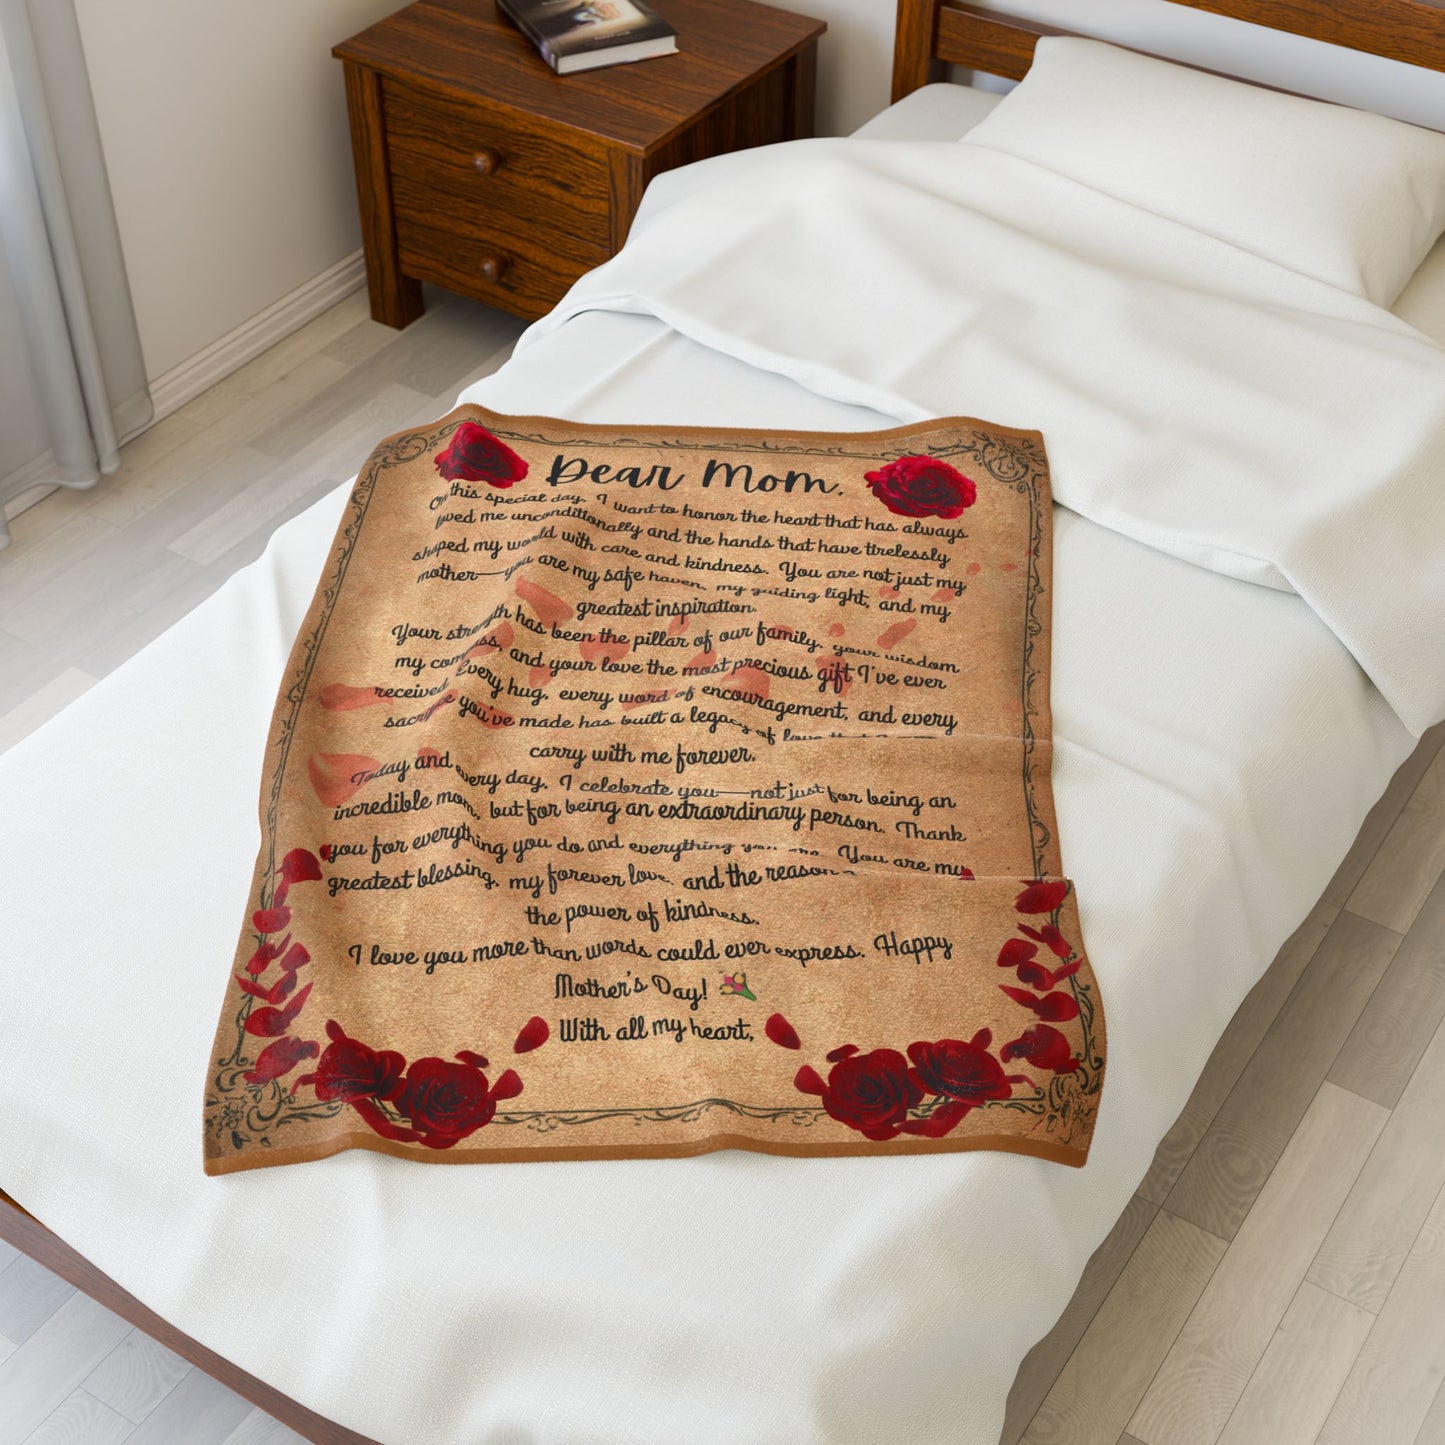 Dear Mom,
On this special day, I want to honor the heart that has always
loved me unconditionally and the hands that have tirelessly
shaped my world with care and kindness. You are not just my
mother—you are my safe haven, my guiding light, and my
greatest inspiration.
Your strength has been the pillar of our family, your wisdom
my compass, and your love the most precious gift I've ever
received. Every hug, every word of encouragement, and every
sacrifice you've made has built a legacy of love that I
carry with me forever.
Today and every day, I celebrate you—not just for being an
incredible mom, but for being an extraordinary person. Thank
you for everything you do and everything you are. You are my
greatest blessing, my forever love, and the reason
the power of kindness.
I love you more than words could ever express. Happy
Mother's Day! 💐
With all my heart,